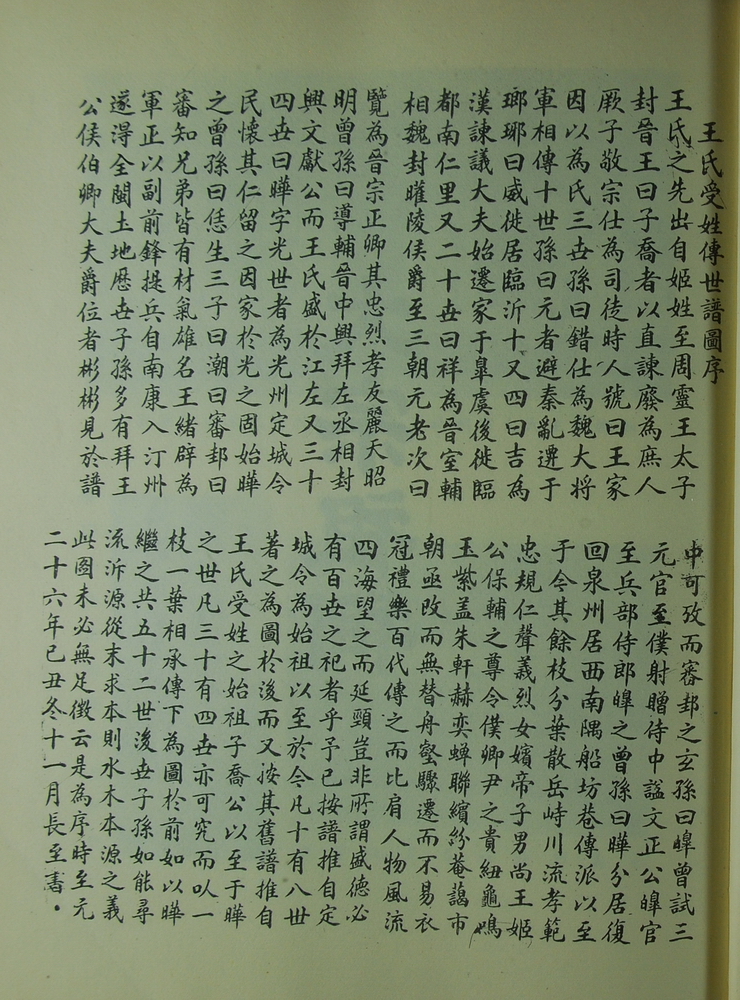 王氏受姓傳世譜圖序
王氏之先出自姬姓至周靈王太子
封晉王曰子喬者以直諫廢為庶人
厥子敬宗仕為司徒時人號曰王家
因以為氏三世孫曰錯仕為魏大将
軍相傳十世孫曰元者避秦亂遷于
瑯琊曰威徙居臨沂十又四曰吉為
漢諫議大夫始遷家于臯虞後徙臨
都南仁里又二十世曰祥為晉室輔
相魏封睢陵侯爵至三朝元老次曰
覽為晉宗正卿其忠烈孝友麗天昭
明曾孫曰導輔晉中興拜左丞相封
興文獻公而王氏盛於江左又三十
四世曰曄字光世者為光州定城令
民懷其仁留之因家於光之固始曄
之曾孫曰恁生三子曰潮曰審邽曰
審知兄弟皆有材氣雄名王緒辟為
軍正以副前鋒提兵自南康入汀州
遂淂全閩土地歷世子孫多有拜王
公侯伯卿大夫爵位者彬彬見於譜
中可攷而審邽之玄孫曰皥曾試三
元官至僕射贈待中謚文正公皥官
至兵部侍郎皥之曾孫曰曄分居復
回泉州居西南隅船坊巷傳派以至
于今其餘枝分葉散岳峙川流孝範
忠規仁聲義烈女嬪帝子男尚王姬
公保輔之尊令僕卿尹之貴紐龜鳴
玉紫盖朱軒赫奕蟬聯繽紛菴藹市
朝亟改而無替舟壑驟遷而不易衣
冠禮樂百代傳之而比肩人物風流
四海望之而延頸豈非所謂盛德必
有百世之祀者乎予已按譜推自定
城令為始祖以至於今凡十有八世
著之為圖於後而又按其舊譜推自
王氏受姓之始祖子喬公以至于曄
之世凡三十有四世亦可究而以一
枝一葉相承傳下為圖於前如以曄
繼之共五十二世後世子孫如能尋
流泝源從末求本則水木本源之義
此圖未必無足徵云是為序時至元
二十六年己丑冬十一月長至書．